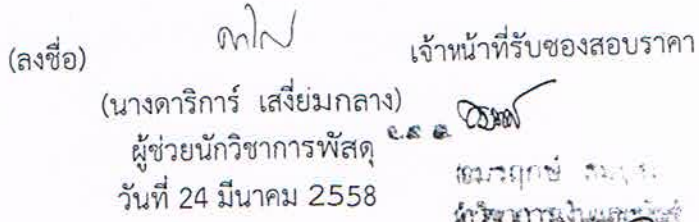 (ลงชื่อ) เจ้าหน้าที่รับซองสอบราคา
(นางดาริการ์ เสงี่ยมกลาง)
ผู้ช่วยนักวิชาการพัสดุ
วันที่ 24 มีนาคม 2558